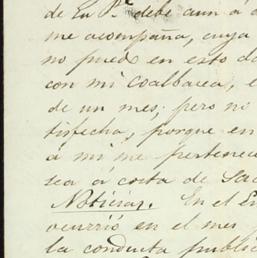 de Eu P.e debe aun á
me acompaña, cuya
no puede en esto da
con mi coalbacea, e
de un mes; pero no
tisfecha, porque en
á mi me pertenec
sea á costa de Sa
Noticias. En el E
ocurrió en el mes
la conducta public